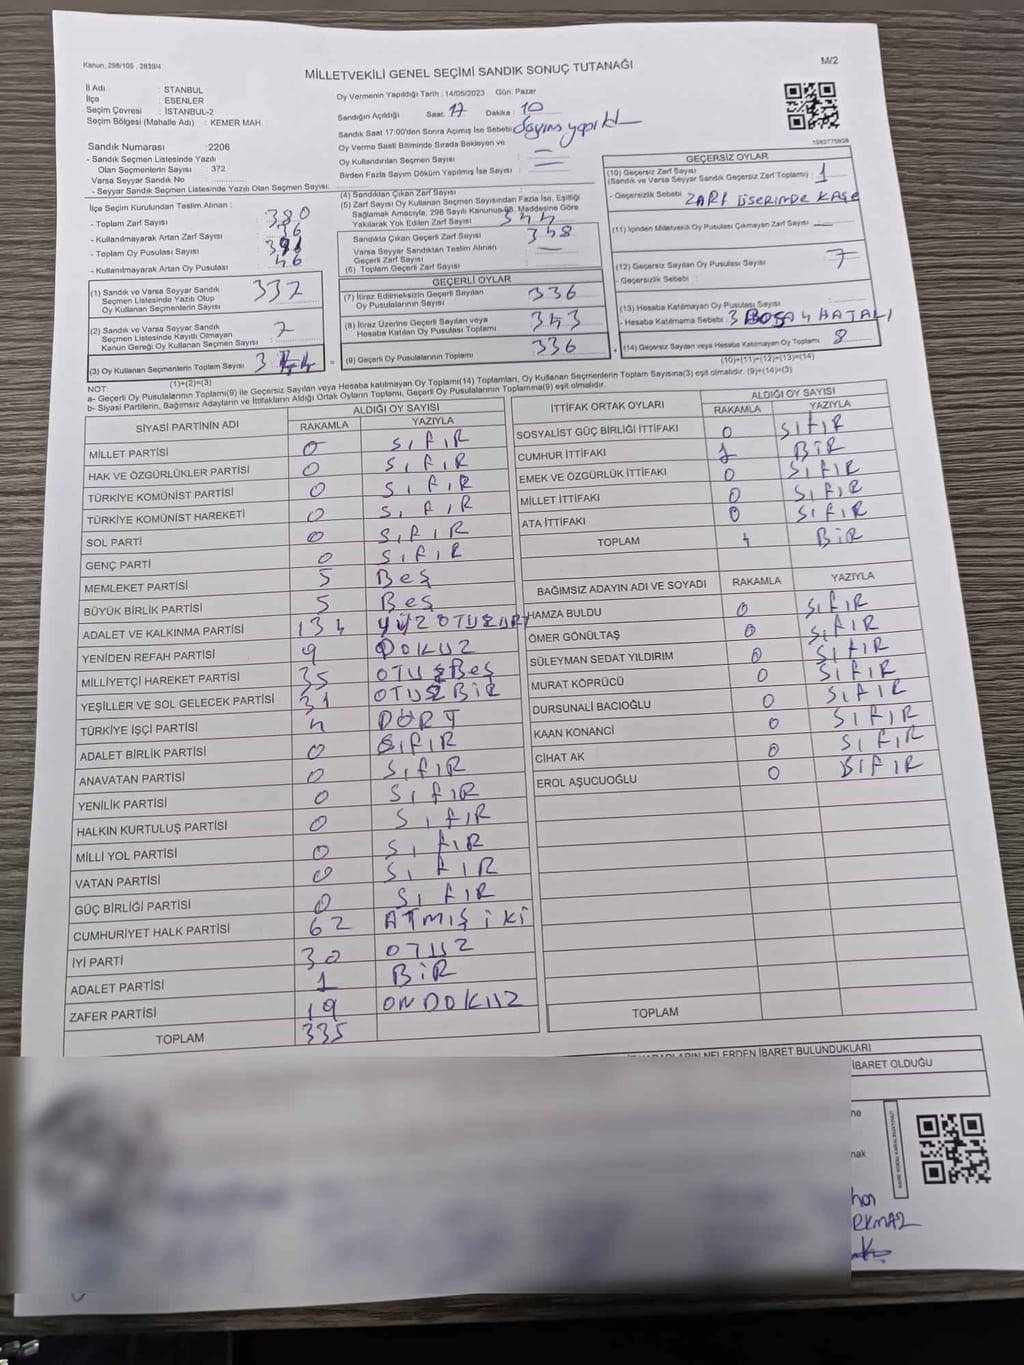 Kanun, 298/105 , 2839/4
MİLLETVEKİLİ GENEL SEÇİMİ SANDIK SONUÇ TUTANAĞI
M/2
İl Adı : İSTANBUL
İlçe : ESENLER
Seçim Çevresi : İSTANBUL-2
Seçim Bölgesi (Mahalle Adı) : KEMER MAH.
Sandık Numarası :2206
- Sandık Seçmen Listesinde Yazılı
Olan Seçmenlerin Sayısı : 372
Varsa Seyyar Sandık No :
- Seyyar Sandık Seçmen Listesinde Yazılı Olan Seçmen Sayısı:
İlçe Seçim Kurulundan Teslim Alınan :
- Toplam Zarf Sayısı : 380
- Kullanılmayarak Artan Zarf Sayısı : 36
- Toplam Oy Pusulası Sayısı :
- Kullanılmayarak Artan Oy Pusulası : 46
(1) Sandık ve Varsa Seyyar Sandık
Seçmen Listesinde Yazılı Olup
Oy Kullanan Seçmenlerin Sayısı 337
(2) Sandık ve Varsa Seyyar Sandık
Seçmen Listesinde Kayıtlı Olmayan
Kanun Gereği Oy Kullanan Seçmen Sayısı 7
(3) Oy Kullanan Seçmenlerin Toplam Sayısı 344
(1)+(2)=(3)
Oy Vermenin Yapıldığı Tarih : 14/05/2023 Gün: Pazar
Sandığın Açıldığı Saat: 17 Dakika : 10
Sandık Saat 17:00'den Sonra Açımış İse Sebebi Sayım yapıldı
Oy Verme Saati Bitiminde Sırada Bekleyen ve
Oy Kullandırılan Seçmen Sayısı :
Birden Fazla Sayım Döküm Yapılmış İse Sayısı :
(4) Sandıktan Çıkan Zarf Sayısı :
(5) Zarf Sayısı Oy Kullanan Seçmen Sayısından Fazla İse, Eşitliği
Sağlamak Amacıyla, 298 Sayılı Kanunun 98. Maddesine Göre
Yakılarak Yok Edilen Zarf Sayısı : 344
Sandıkta Çıkan Geçerli Zarf Sayısı : 348
Varsa Seyyar Sandıktan Teslim Alınan
Geçerli Zarf Sayısı :
(6) Toplam Geçerli Zarf Sayısı :
GEÇERLİ OYLAR
(7) İtiraz Edilmeksizin Geçerli Sayılan
Oy Pusulalarının Sayısı : 336
(8) İtiraz Üzerine Geçerli Sayılan veya
Hesaba Katılan Oy Pusulası Toplamı : 343
(9) Geçerli Oy Pusulalarının Toplamı : 336
1583775938
GEÇERSİZ OYLAR
(10) Geçersiz Zarf Sayısı
(Sandık ve Varsa Seyyar Sandık Geçersiz Zarf Toplamı) : 1
- Geçersizlik Sebebi : ZARF ÜSERİNDE KAŞE
(11) İçinden Milletvekili Oy Pusulası Çıkmayan Zarf Sayısı :
(12) Geçersiz Sayılan Oy Pusulası Sayısı : 7
- Geçersizlik Sebebi :
(13) Hesaba Katılmayan Oy Pusulası Sayısı :
- Hesaba Katılmama Sebebi : 3 BOŞ 4 HATALI
(14) Geçersiz Sayılan veya Hesaba Katılmayan Oy Toplamı 8
(10)+(11)+(12)+(13)=(14)
NOT:
a- Geçerli Oy Pusulalarının Toplamı(9) ile Geçersiz Sayılan veya Hesaba katılmayan Oy Toplamı(14) Toplamları, Oy Kullanan Seçmenlerin Toplam Sayısına(3) eşit olmalıdır. (9)+(14)=(3)
b- Siyasi Partilerin, Bağımsız Adayların ve İttifakların Aldığı Ortak Oyların Toplamı, Geçerli Oy Pusulalarının Toplamına(9) eşit olmalıdır.
SİYASİ PARTİNİN ADI ALDIĞI OY SAYISI
RAKAMLA YAZIYLA
MİLLET PARTİSİ 0 SIFIR
HAK VE ÖZGÜRLÜKLER PARTİSİ 0 SIFIR
TÜRKİYE KOMÜNİST PARTİSİ 0 SIFIR
TÜRKİYE KOMÜNİST HAREKETİ 0 SIFIR
SOL PARTİ 0 SIFIR
GENÇ PARTİ 0 SIFIR
MEMLEKET PARTİSİ 5 Beş
BÜYÜK BİRLİK PARTİSİ 5 Beş
ADALET VE KALKINMA PARTİSİ 134 YÜZ OTUZ DÖRT
YENİDEN REFAH PARTİSİ 9 DOKUZ
MİLLİYETÇİ HAREKET PARTİSİ 35 OTUZ Beş
YEŞİLLER VE SOL GELECEK PARTİSİ 31 OTUZ BİR
TÜRKİYE İŞÇİ PARTİSİ 4 DÖRT
ADALET BİRLİK PARTİSİ 0 SIFIR
ANAVATAN PARTİSİ 0 SIFIR
YENİLİK PARTİSİ 0 SIFIR
HALKIN KURTULUŞ PARTİSİ 0 SIFIR
MİLLİ YOL PARTİSİ 0 SIFIR
VATAN PARTİSİ 0 SIFIR
GÜÇ BİRLİĞİ PARTİSİ 0 SIFIR
CUMHURİYET HALK PARTİSİ 62 ATMIŞ İKİ
İYİ PARTİ 30 OTUZ
ADALET PARTİSİ 1 BİR
ZAFER PARTİSİ 19 ONDOKUZ
TOPLAM 335
İTTİFAK ORTAK OYLARI ALDIĞI OY SAYISI
RAKAMLA YAZIYLA
SOSYALİST GÜÇ BİRLİĞİ İTTİFAKI 0 SIFIR
CUMHUR İTTİFAKI 1 BİR
EMEK VE ÖZGÜRLÜK İTTİFAKI 0 SIFIR
MİLLET İTTİFAKI 0 SIFIR
ATA İTTİFAKI 0 SIFIR
TOPLAM 1 BİR
BAĞIMSIZ ADAYIN ADI VE SOYADI RAKAMLA YAZIYLA
HAMZA BULDU 0 SIFIR
ÖMER GÖNÜLTAŞ 0 SIFIR
SÜLEYMAN SEDAT YILDIRIM 0 SIFIR
MURAT KÖPRÜCÜ 0 SIFIR
DURSUNALİ BACIOĞLU 0 SIFIR
KAAN KONANCİ 0 SIFIR
CİHAT AK 0 SIFIR
EROL AŞUCUOĞLU 0 SIFIR
TOPLAM
NELERDEN İBARET BULUNDUKLARI
İBARET OLDUĞU